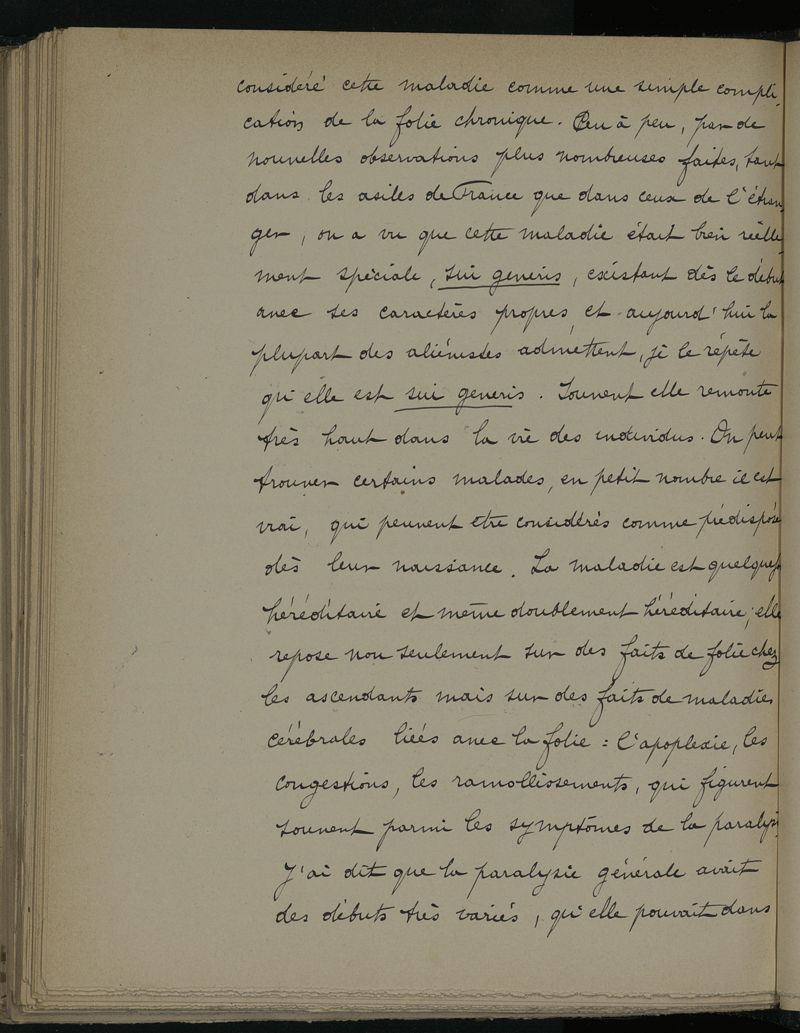 considéré cette maladie comme une simple compli-
cation de la folie chronique. Peu à peu, par de
nouvelles observations plus nombreuses faites, tant
dans les asiles de France que dans ceux de l'étran
ger, on a vu que cette maladie était bien réelle
ment spéciale, sui generis, existant dès le début
avec ses caractères propres, et aujourd'hui la
plupart des aliénistes admettent, je le répète
qu'elle est sui generis. Souvent elle remonte
très haut dans la vie des individus. On peut
trouver certains malades, en petit nombre il est
vrai, qui peuvent être considérés comme prédispósé
dès leur naissance. La maladie est quelquef
héréditaire et même doublement héréditaire; elle
repose non seulement sur des faits de folie chez
les ascendants mais sur des faits de maladies
cérébrales liées avec la folie : l'apoplexie, les
congestions, les ramollissements, qui figurent
souvent parmi les symptômes de la paralysi
J'ai dit que la paralysie générale avait
des débuts très variés, qu'elle pouvait dans